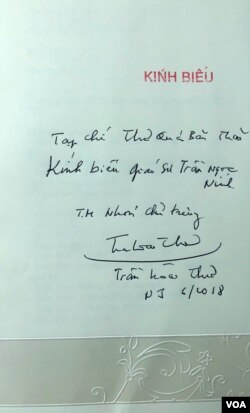 KÍNH BIẾU
Tạp chí Thư Quán Bản Thảo
Kính biếu giáo sư Trần Ngọc
Ninh
T.M Nhóm chủ trương
Trần Hoài Thư
NJ 6/2018
VOA